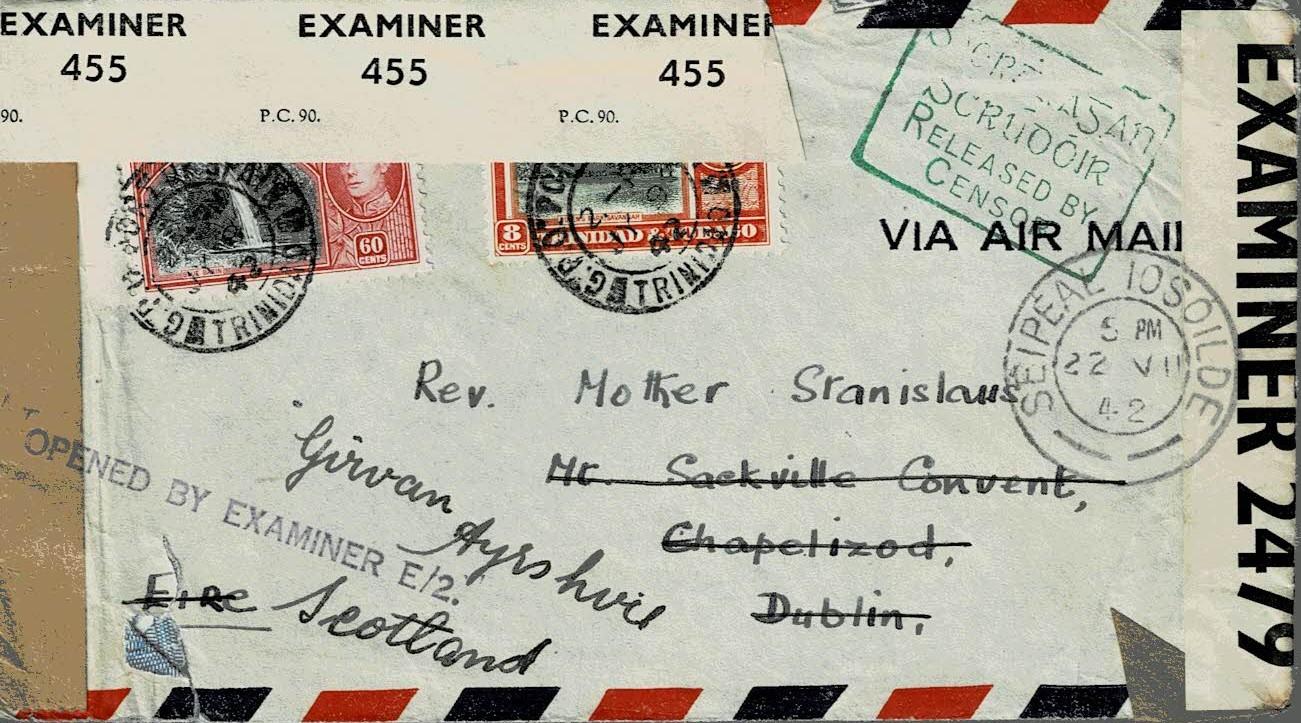 EXAMINER EXAMINER EXAMINER
455 455 455
90. P.C. 90. P.C. 90.
SCRÚDÓIR
RELEASED BY
CENSOR
VIA AIR MAIL
60
CENTS
8
CENTS
TRINIDAD &
SAVANNAH
G.P.O. PORT OF SPAIN
TRINIDAD
G.P.O.
TRINIDAD
SEIPEAL IOSOILDE
5 PM
22 VII
42
EXAMINER 2479
Rev. Mother Stanislaus
Mt. Sackville Convent,
Chapelizod,
Dublin,
Eire
Girvan
Ayrshire
Scotland
OPENED BY EXAMINER E/2.